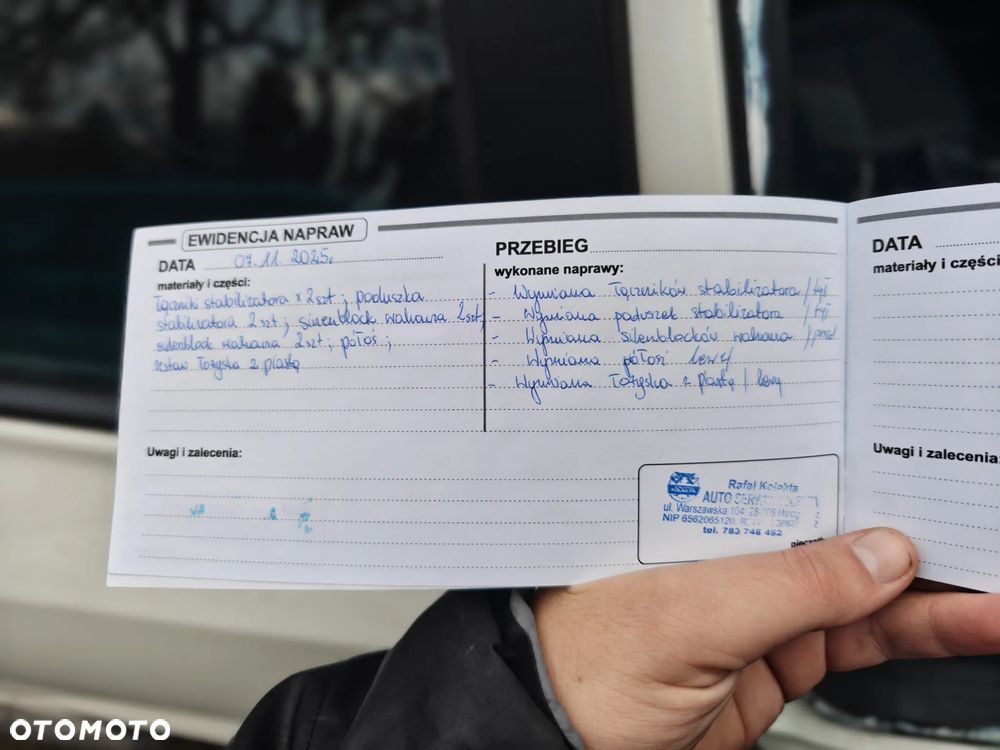 EWIDENCJA NAPRAW
DATA 07.11.2025r
materiały i części:
Łączniki stabilizatora x 2szt; poduszka
stabilizatora 2szt; silenblock wahacza 2szt,
silenblock wahacza 2szt; półoś;
zestaw łożyska z piastą
Uwagi i zalecenia:
PRZEBIEG
wykonane naprawy:
- Wymiana łączników stabilizatora / tył
- Wymiana poduszek stabilizatora / tył
- Wymiana silenblocków wahacza / przód
- Wymiana półosi lewej
- Wymiana łożyska z piastą / lewy
Rafał
AUTO
ul. Warszawska 104
NIP 6562065120
tel. 783 746 452
DATA
materiały i części
Uwagi i zalecenia:
OTOMOTO